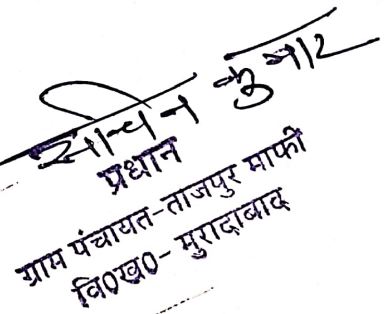 सचिन कुमार
प्रधान
ग्राम पंचायत-ताजपुर माफी
वि०ख०- मुरादाबाद